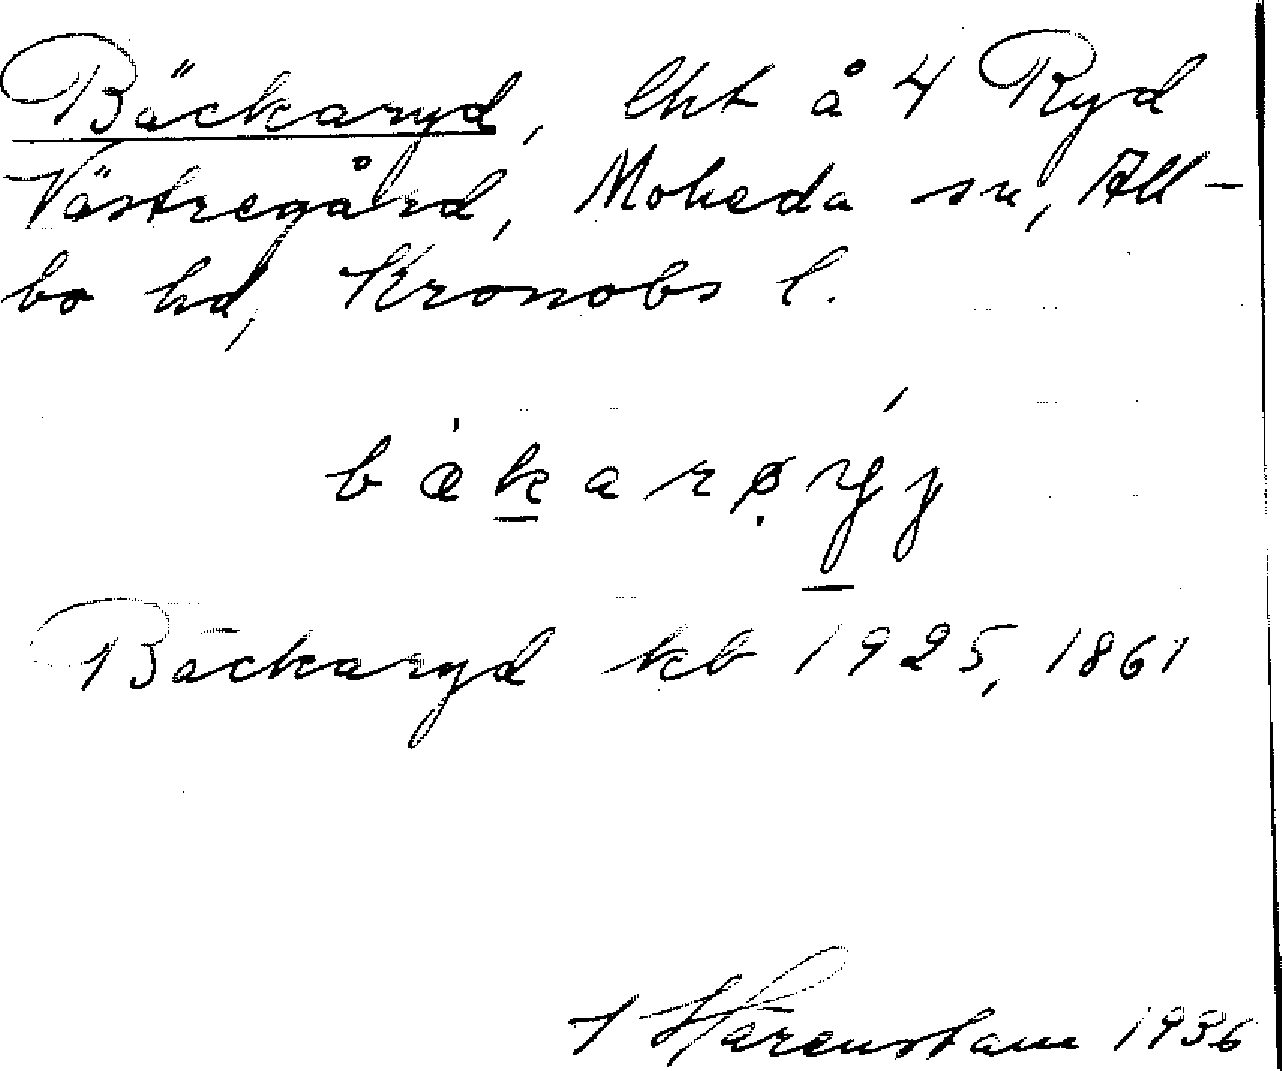 Bäckaryd, lht å 4 Ryd
Västregård, Moheda sn, All-
bo hd, Kronobs l.
Bäckaryd kb 1925, 1861
J Härenstam 1936